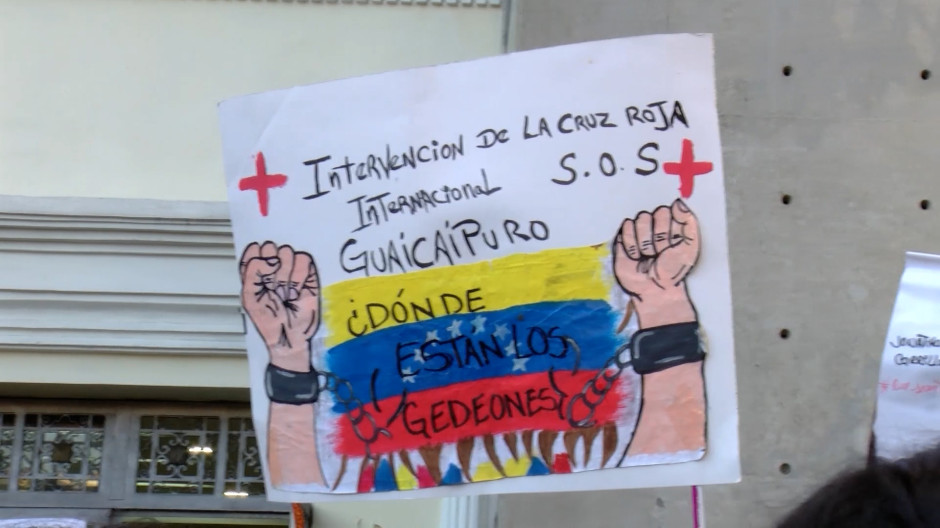 IntervencIon De LA CRUZ ROJA
InTeRNAcIonaL S.O.S
GUAiCAiPURO
¿DÓNDE
ESTÁN LOS
GEDEONES?